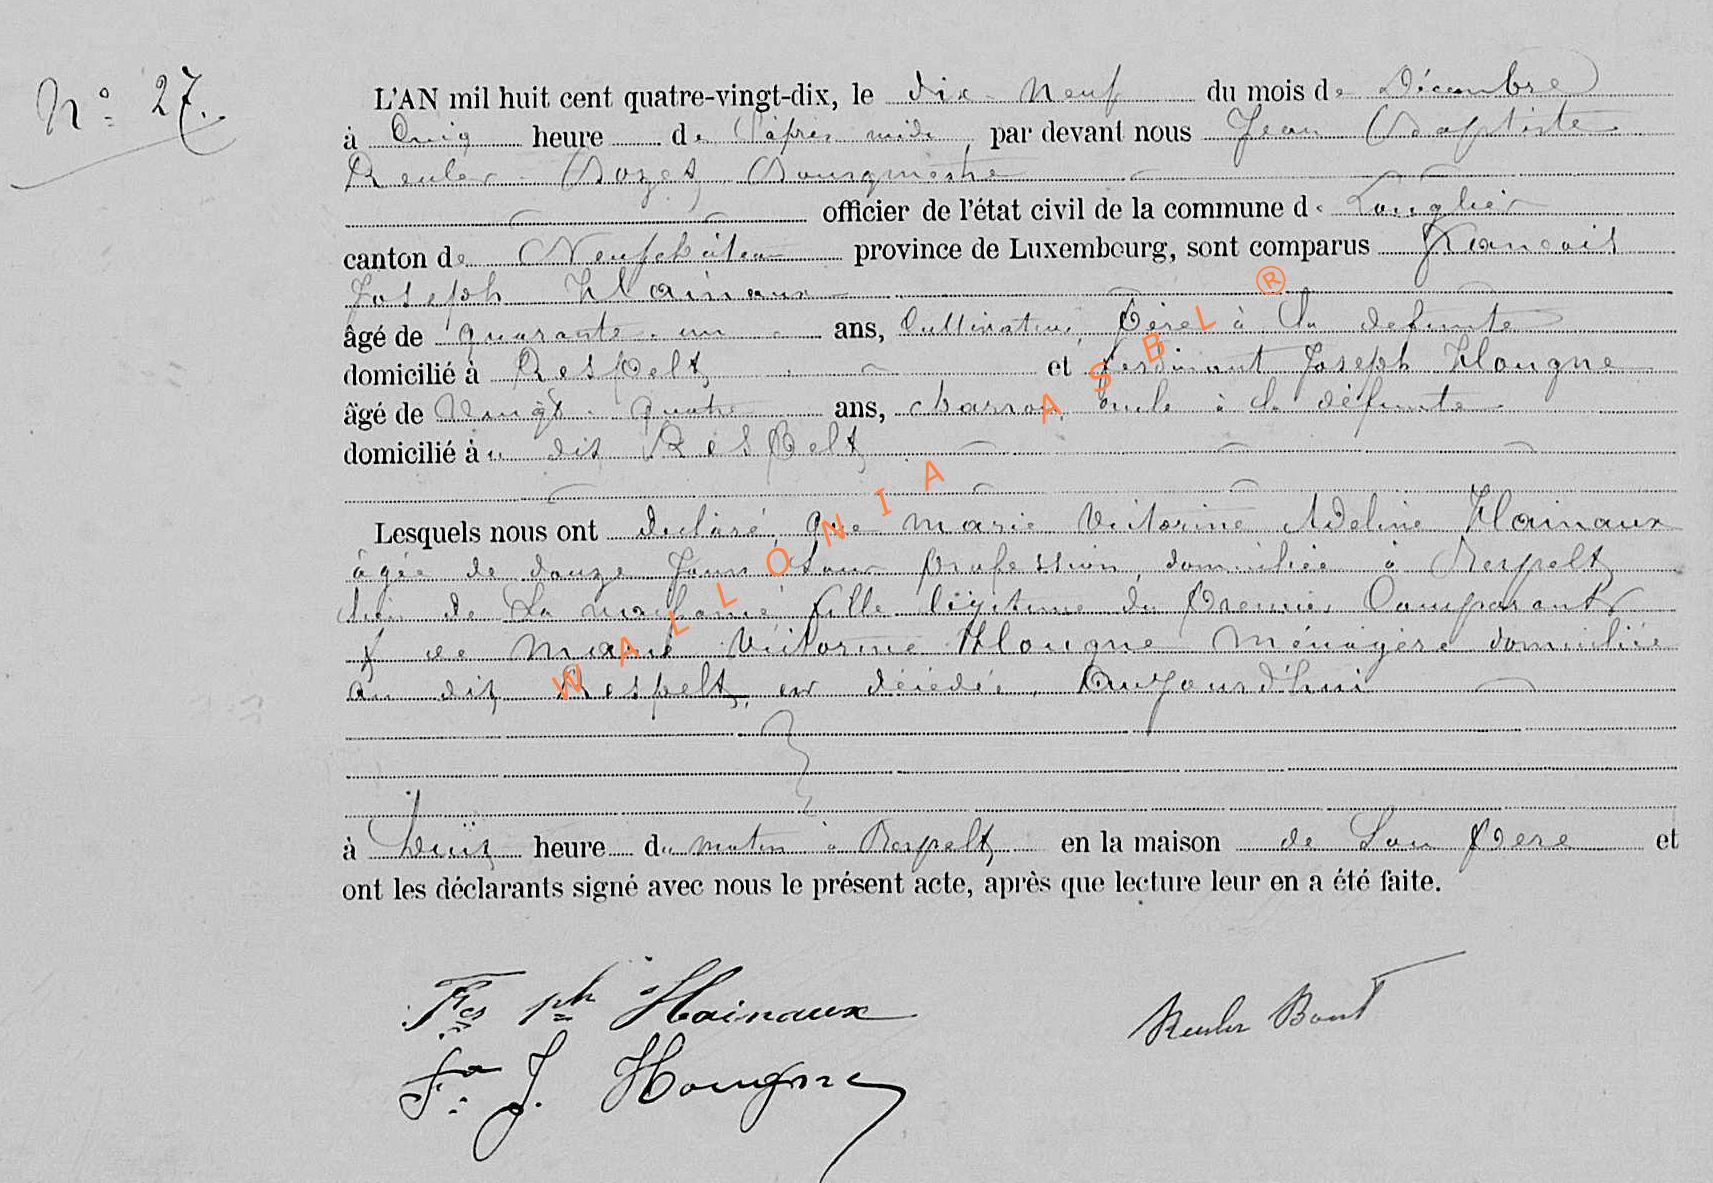 N° 27.
L'AN mil huit cent quatre-vingt-dix, le dix neuf du mois de Décembre
à Cinq heure de l'après midi, par devant nous Jean Baptiste
Reuler Bozet Bourgmestre
officier de l'état civil de la commune de Longlier
canton de Neufchâteau province de Luxembourg, sont comparus François
Joseph Hainaux
âgé de quarante un ans, Cultivateur, Père à la défunte
domicilié à Respelt et Ferdinant Joseph Hougne
âgé de Vingt quatre ans, charron oncle à la défunte
domicilié à u dit Respelt
Lesquels nous ont déclaré, que Marie Victorine Adeline Hainaux
âgée de douze Jours Sans profession, domiciliée à Respelt
fille légitime du Premier Comparant
& de Marie Victorine Hougne Ménagère domiciliée
au dit Respelt, est décédée, Aujourd'hui
à huit heure du matin à Respelt en la maison de Son Père et
ont les déclarants signé avec nous le présent acte, après que lecture leur en a été faite.
Fcs ph Hainaux
Reuler Bozet
F. J. Hougne
WALLONIA ASBL ®